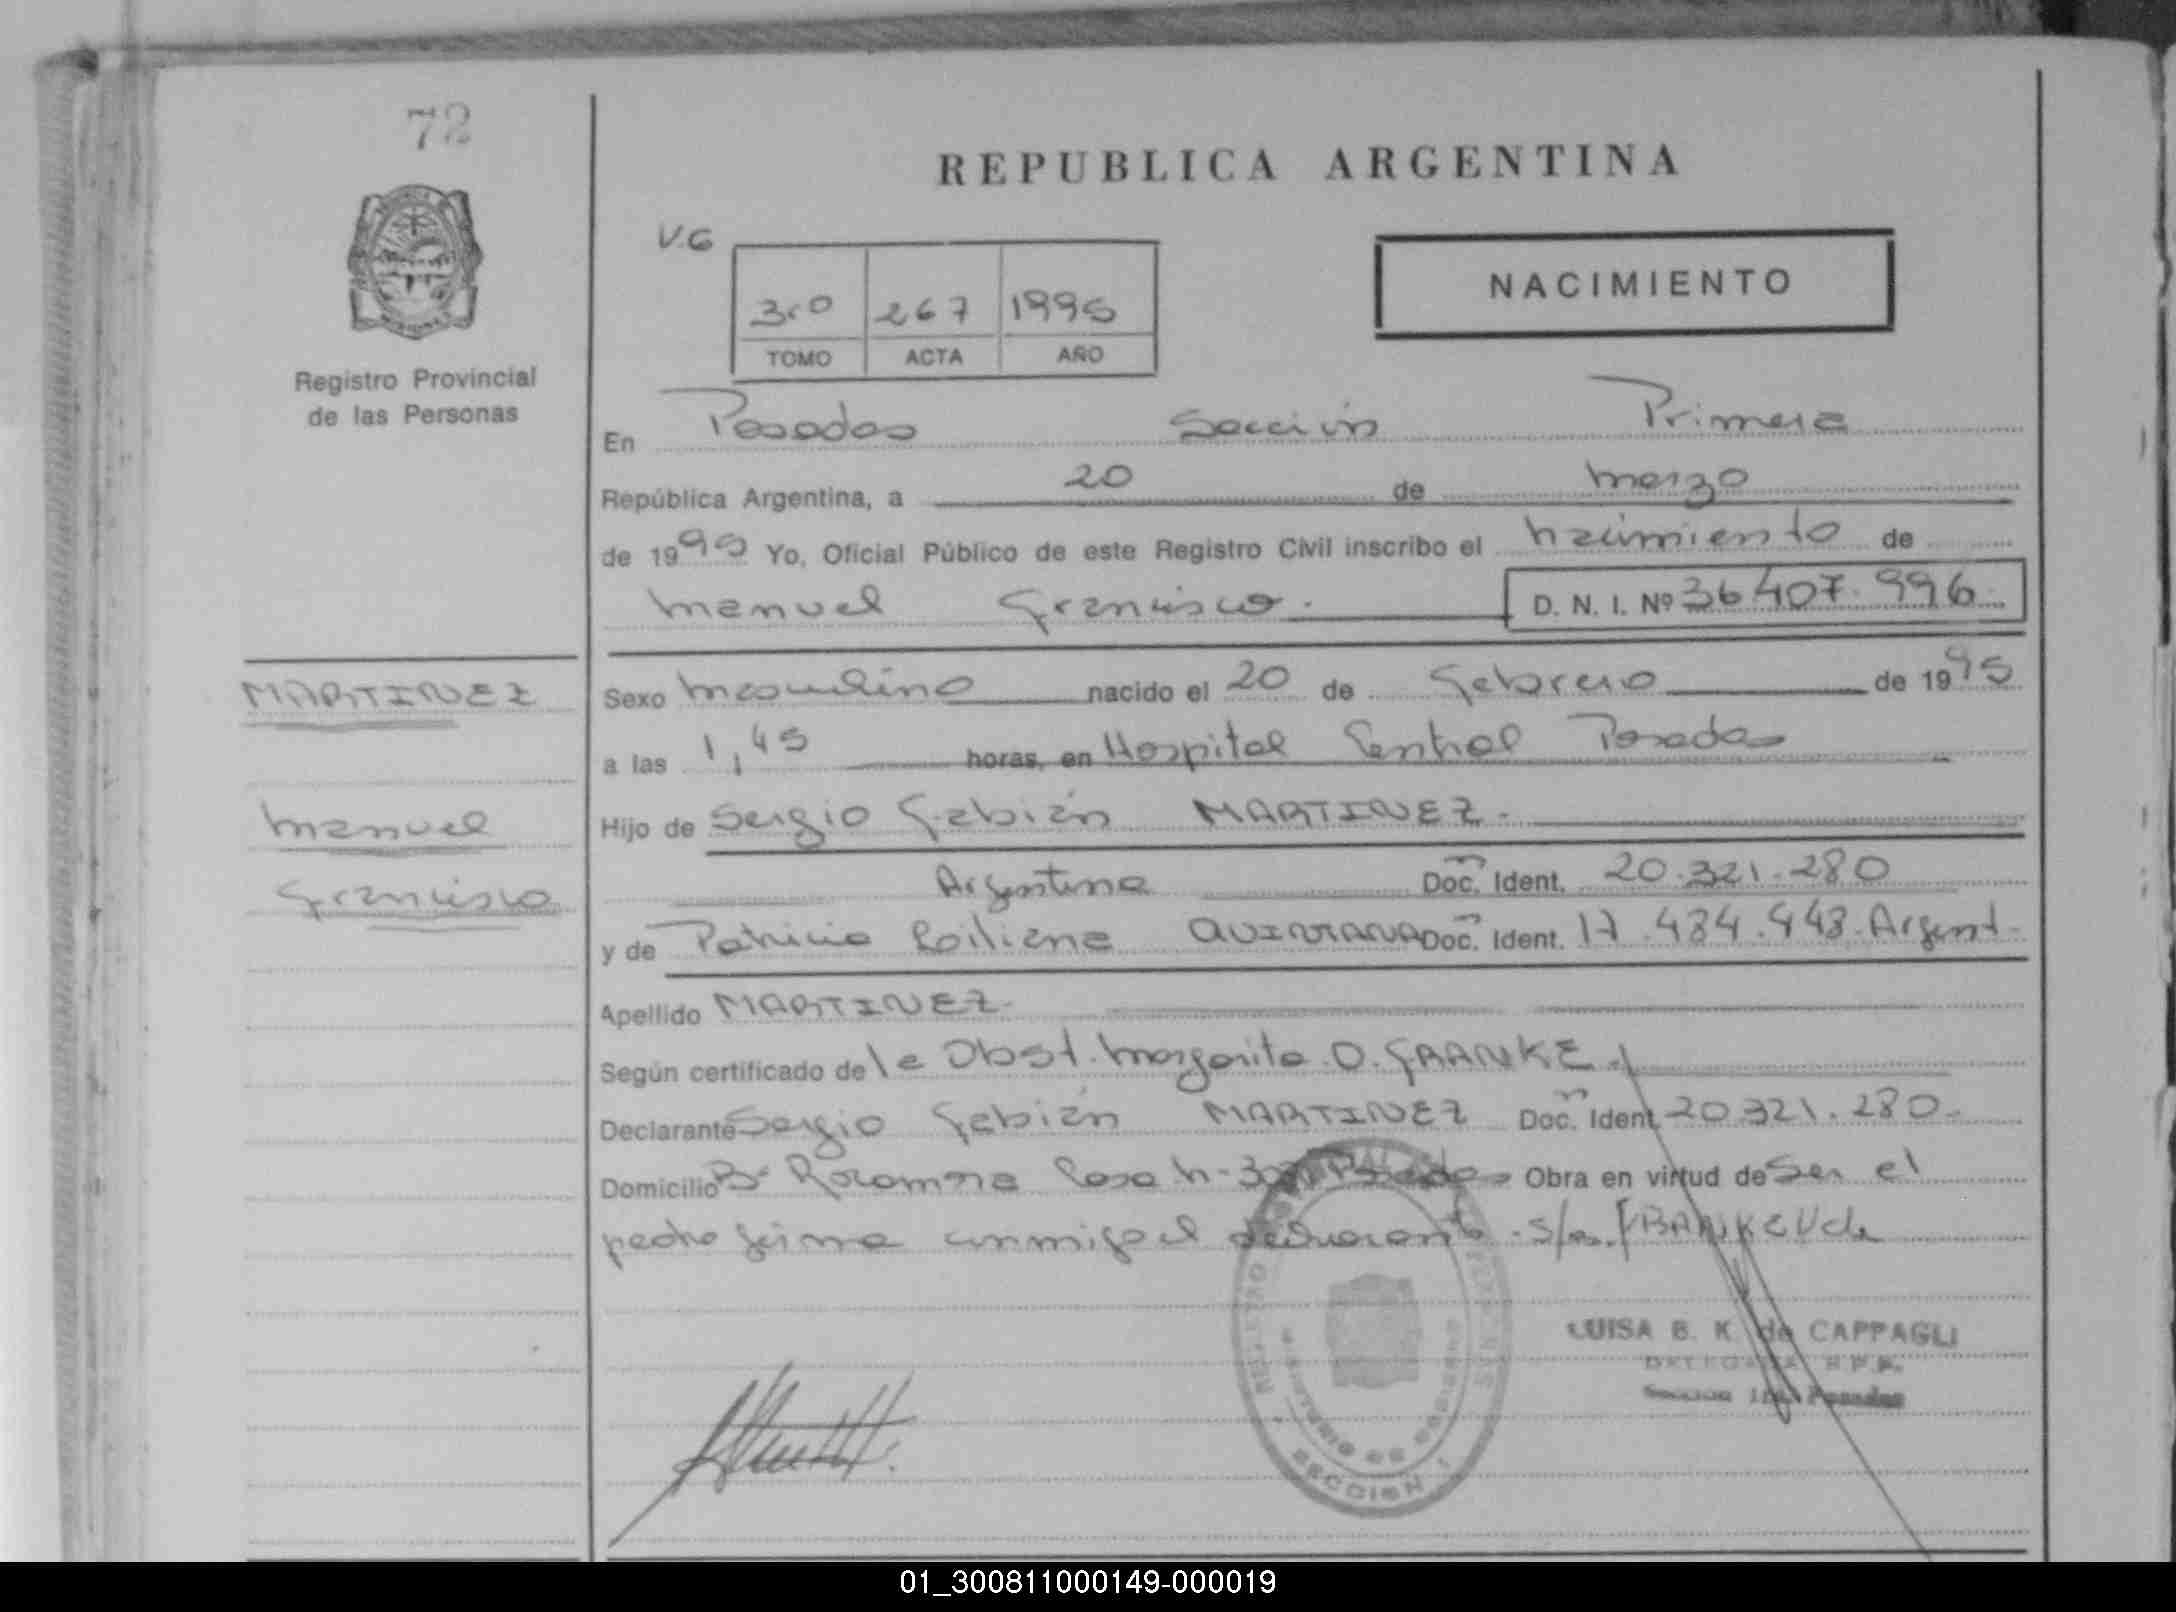 72
REPUBLICA ARGENTINA
V.G
NACIMIENTO
3ro 267 1995
TOMO ACTA AÑO
Registro Provincial
de las Personas
En Posadas Sección Primera
República Argentina, a 20 de marzo
de 1995 Yo, Oficial Público de este Registro Civil inscribo el nacimiento de
Manuel Francisco. D. N. I. Nº 36407.996.
MARTINEZ
Sexo masculino nacido el 20 de Febrero de 1995
a las 1,45 horas, en Hospital Central Posadas
Manuel
Hijo de Sergio Fabián MARTINEZ.
Francisco
Argentina Doc. Ident. 20.321.280
y de Patricia Liliana QUINTANA Doc. Ident. 17.484.448. Argent.
Apellido MARTINEZ.
Según certificado de la Obst. Margarita O. FRANKE.
Declarante Sergio Fabián MARTINEZ Doc. Ident. 20.321.280.
Domicilio Bº Rocamora Casa Posadas Obra en virtud de Ser el
padre firma conmigo el declarante. S/
LUISA B. K. de CAPPAGLI
DELEGADA R.P.P.
Sección 1ra. Posadas
SECCION 1
01_300811000149-000019